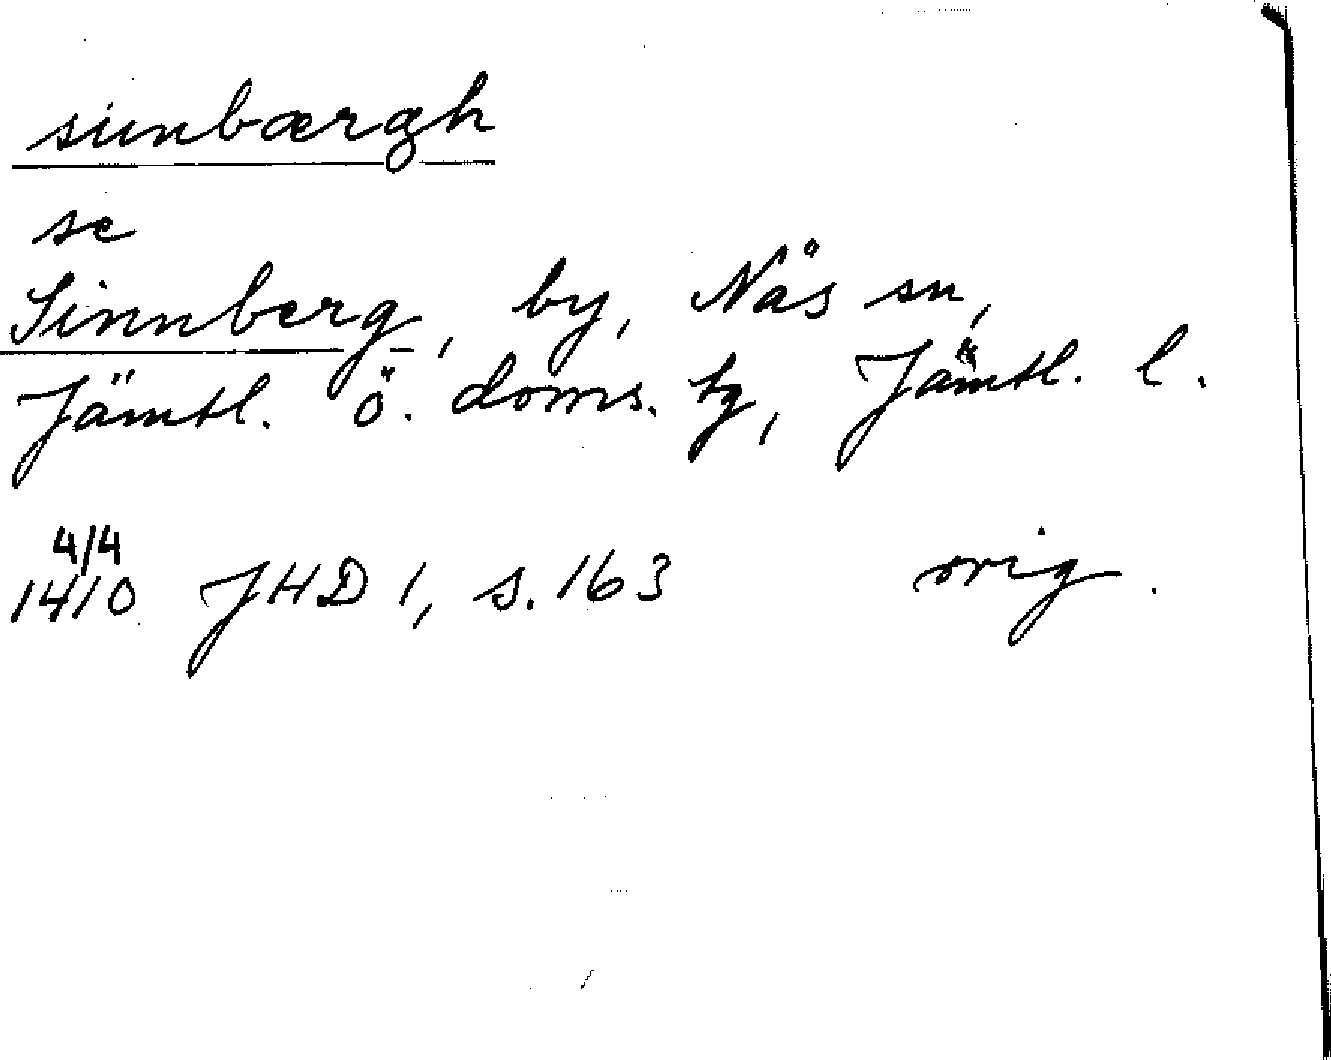 siinbærgh
se
Sinnberg, by, Näs sn,
Jämtl. ö. doms. tg, Jämtl. l.
4/4
1410 JHD 1, s. 163 orig.